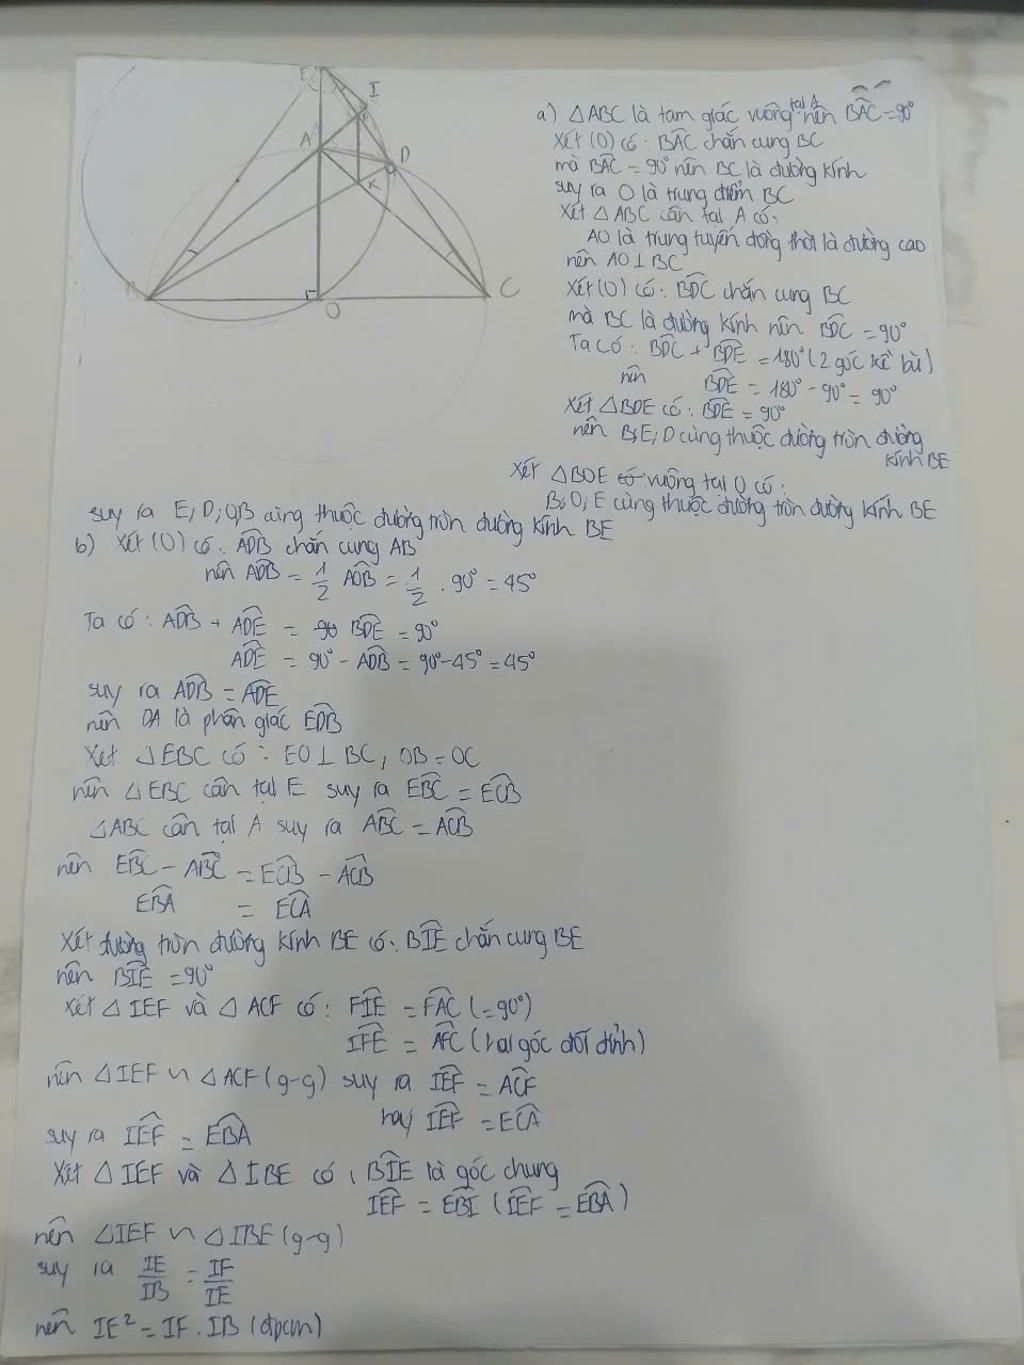 I
A
F
D
K
C
O
a) △ABC là tam giác vuông tại A nên BÂC = 90°
Xét (O) có: BÂC chắn cung BC
mà BÂC = 90° nên BC là đường kính
suy ra O là trung điểm BC
Xét △ABC cân tại A có:
AO là trung tuyến đồng thời là đường cao
nên AO ⊥ BC
Xét (O) có: BD̂C chắn cung BC
mà BC là đường kính nên BD̂C = 90°
Ta có: BD̂C + BD̂E = 180° (2 góc kề bù)
nên BD̂E = 180° - 90° = 90°
Xét △BDE có: BD̂E = 90°
nên B;E;D cùng thuộc đường tròn đường kính BE
Xét △BOE có vuông tại O có:
B;O;E cùng thuộc đường tròn đường kính BE
suy ra E;D;O;B cùng thuộc đường tròn đường kính BE
b) Xét (O) có: AD̂B chắn cung AB
nên AD̂B = 1/2 AÔB = 1/2 . 90° = 45°
Ta có: AD̂B + AD̂E = 90 BD̂E = 90°
AD̂E = 90° - AD̂B = 90° - 45° = 45°
suy ra AD̂B = AD̂E
nên DA là phân giác ED̂B
Xét △EBC có: EO ⊥ BC, OB = OC
nên △EBC cân tại E suy ra EB̂C = EĈB
△ABC cân tại A suy ra AB̂C = AĈB
nên EB̂C - AB̂C = EĈB - AĈB
EB̂A = EĈA
Xét đường tròn đường kính BE có: BÎE chắn cung BE
nên BÎE = 90°
Xét △IEF và △ACF có: FÎE = FÂC (= 90°)
IF̂E = AF̂C (hai góc đối đỉnh)
nên △IEF ∽ △ACF (g-g) suy ra IÊF = AĈF
hay IÊF = EĈA
suy ra IÊF = EB̂A
Xét △IEF và △IBE có: BÎE là góc chung
IÊF = EB̂I (IÊF = EB̂A)
nên △IEF ∽ △IBE (g-g)
suy ra IE/IB = IF/IE
nên IE² = IF . IB (đpcm)